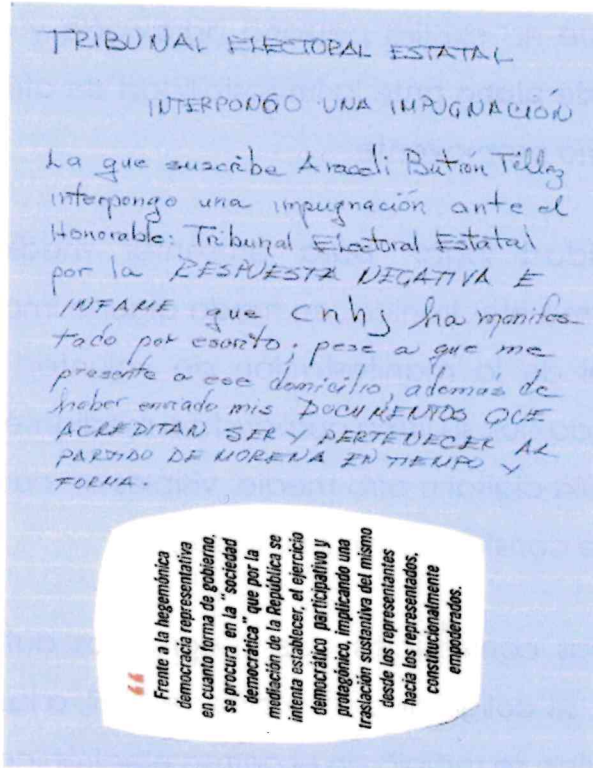 TRIBUNAL ELECTORAL ESTATAL
INTERPONGO UNA IMPUGNACION
La que suscribe Araceli Butrón Téllez
interpongo una impugnación ante el
Honorable: Tribunal Electoral Estatal
por la RESPUESTA NEGATIVA E
INFAME que cnhj ha manifes
tado por escrito. pese a que me
presente a ese domicilio, ademas de
haber enviado mis DOCUMENTOS QUE
ACREDITAN SER Y PERTENECER AL
PARTIDO DE MORENA EN TIEMPO Y
FORMA
“
Frente a la hegemónica
democracia representativa
en cuanto forma de gobierno,
se procura en la "sociedad
democrática" que por la
mediación de la República se
intenta establecer, el ejercicio
democrático participativo y
protagónico, implicando una
traslación sustantiva del mismo
desde los representantes
hacia los representados,
constitucionalmente
empoderados.